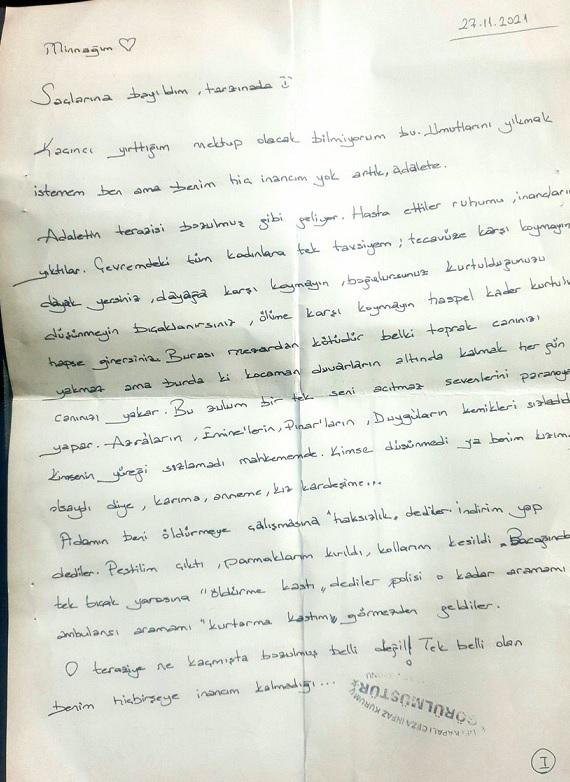 27.11.2021
Minnağım ♡
Saçlarına bayıldım, tarzınada :)
Kaçıncı yırttığım mektup olacak bilmiyorum bu. Umutlarını yıkmak
istemem ben ama benim hiç inancım yok artık, adalete.
Adaletin terazisi bozulmuş gibi geliyor. Hasta ettiler ruhumu, inançları
yıktılar. Çevremdeki tüm kadınlara tek tavsiyem; tecavüze karşı koymayın
dayak yersiniz, dayağa karşı koymayın, boğulursunuz kurtulduğunuzu
düşünmeyin bıçaklanırsınız, ölüme karşı koymayın haspel kader kurtulu
hapse girersiniz. Burası mezardan kötüdür belki toprak canınızı
yakmaz ama burda ki kocaman duvarların altında kalmak her gün
canınızı yakar. Bu zulum bir tek seni acıtmaz sevenlerini paranoya
yapar. Azra'ların, Emine'lerin, Pınar'ların, Duygu'ların kemikleri sızladı
kimsenin yüreği sızlamadı mahkemende. Kimse düşünmedi ya benim kızım
olsaydı diye, karıma, anneme, kız kardeşime...
Adamın beni öldürmeye çalışmasına "haksızlık" dediler. İndirim yap
dediler. Pestilim çıktı, parmaklarım kırıldı, kollarım kesildi. Bacağında
tek bıçak yarasına "öldürme kastı" dediler polisi o kadar aramamı
ambulansı aramamı "kurtarma kastımı" görmezden geldiler.
O teraziye ne kaçmışta bozulmuş belli değil! Tek belli olan
benim hiçbirşeye inancım kalmadığı...
KAPALI CEZA İNFAZ KURUMU
GÖRÜLMÜŞTÜR
I